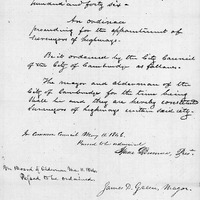 hundred and forty six.
An ordinance
providing for the appointment of
surveyors of highways.
Be it ordained by the City Council
of the City of Cambridge as follows:
The mayor and aldermen of the
City of Cambridge for the time being
shall be and they are hereby constituted
surveyors of highways within said city.
In Common Council May 11 1846.
Passed to be ordained
Isaac Livermore, Pres.
In Board of Aldermen May 11. 1846.
Passed to be ordained.
James D. Green, Mayor.